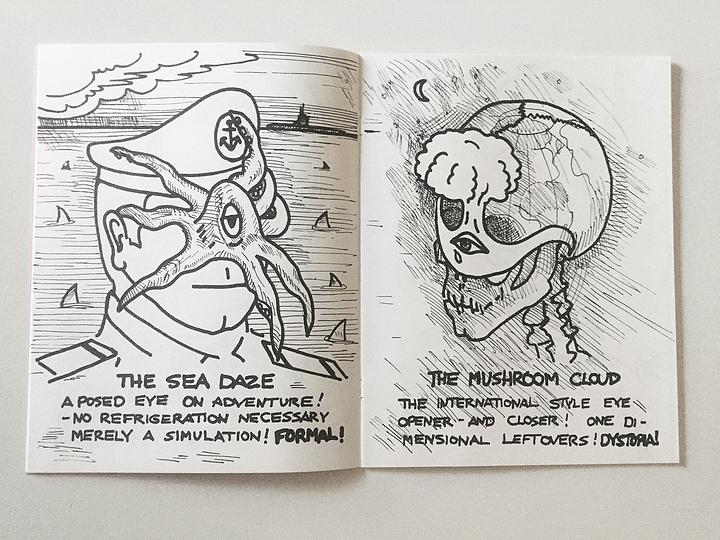 THE SEA DAZE
A POSED EYE ON ADVENTURE!
-NO REFRIGERATION NECESSARY
MERELY A SIMULATION! FORMAL!
THE MUSHROOM CLOUD
THE INTERNATIONAL STYLE EYE
OPENER - AND CLOSER! ONE DI-
MENSIONAL LEFTOVERS! DYSTOPIA!